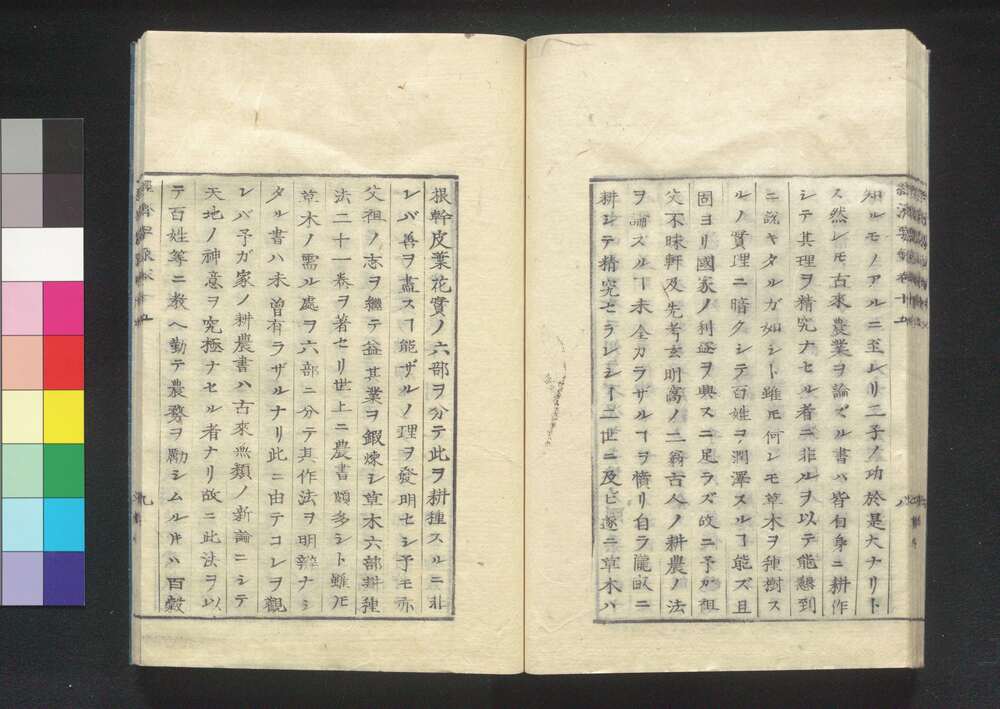 知ルモノアルニ至レリ二子ノ功於是大ナリト
ス然レモ古來農業ヲ論ズル書ハ皆自身ニ耕作
シテ其理ヲ精究ナセル者ニ非ルヲ以テ能懇到
ニ説キタルガ如シト雖モ何レモ草木ヲ種樹ス
ルノ實理ニ暗クシテ百姓ヲ潤澤スルヿ能ズ且
固ヨリ國家ノ利益ヲ興スニ足ラズ故ニ予ガ祖
父不昧軒及先考玄明窩ノ二翁古人ノ耕農ノ法
ヲ論ズルヿ未全カラザルヿヲ憤リ自ラ隴畝ニ
耕シテ精究セラレシヿ二世ニ及ビ遂ニ草木ハ
根幹皮葉花實ノ六部ヲ分テ此ヲ耕種スルニ非
レバ善ヲ盡スヿ能ザルノ理ヲ發明セシ予モ亦
父祖ノ志ヲ繼テ益其業ヲ鍛煉シ草木六部耕種
法二十一卷ヲ著セリ世上ニ農書頗多シト雖モ
草木ノ需ル處ヲ六部ニ分テ其作法ヲ明辨ナシ
タル書ハ未曾有ラザルナリ此ニ由テコレヲ觀
レバ予ガ家ノ耕農書ハ古來無類ノ新論ニシテ
天地ノ神意ヲ究極ナセル者ナリ故ニ此法ヲ以
テ百姓等ニ教ヘ勤テ農務ヲ勵シムルキハ百穀
九